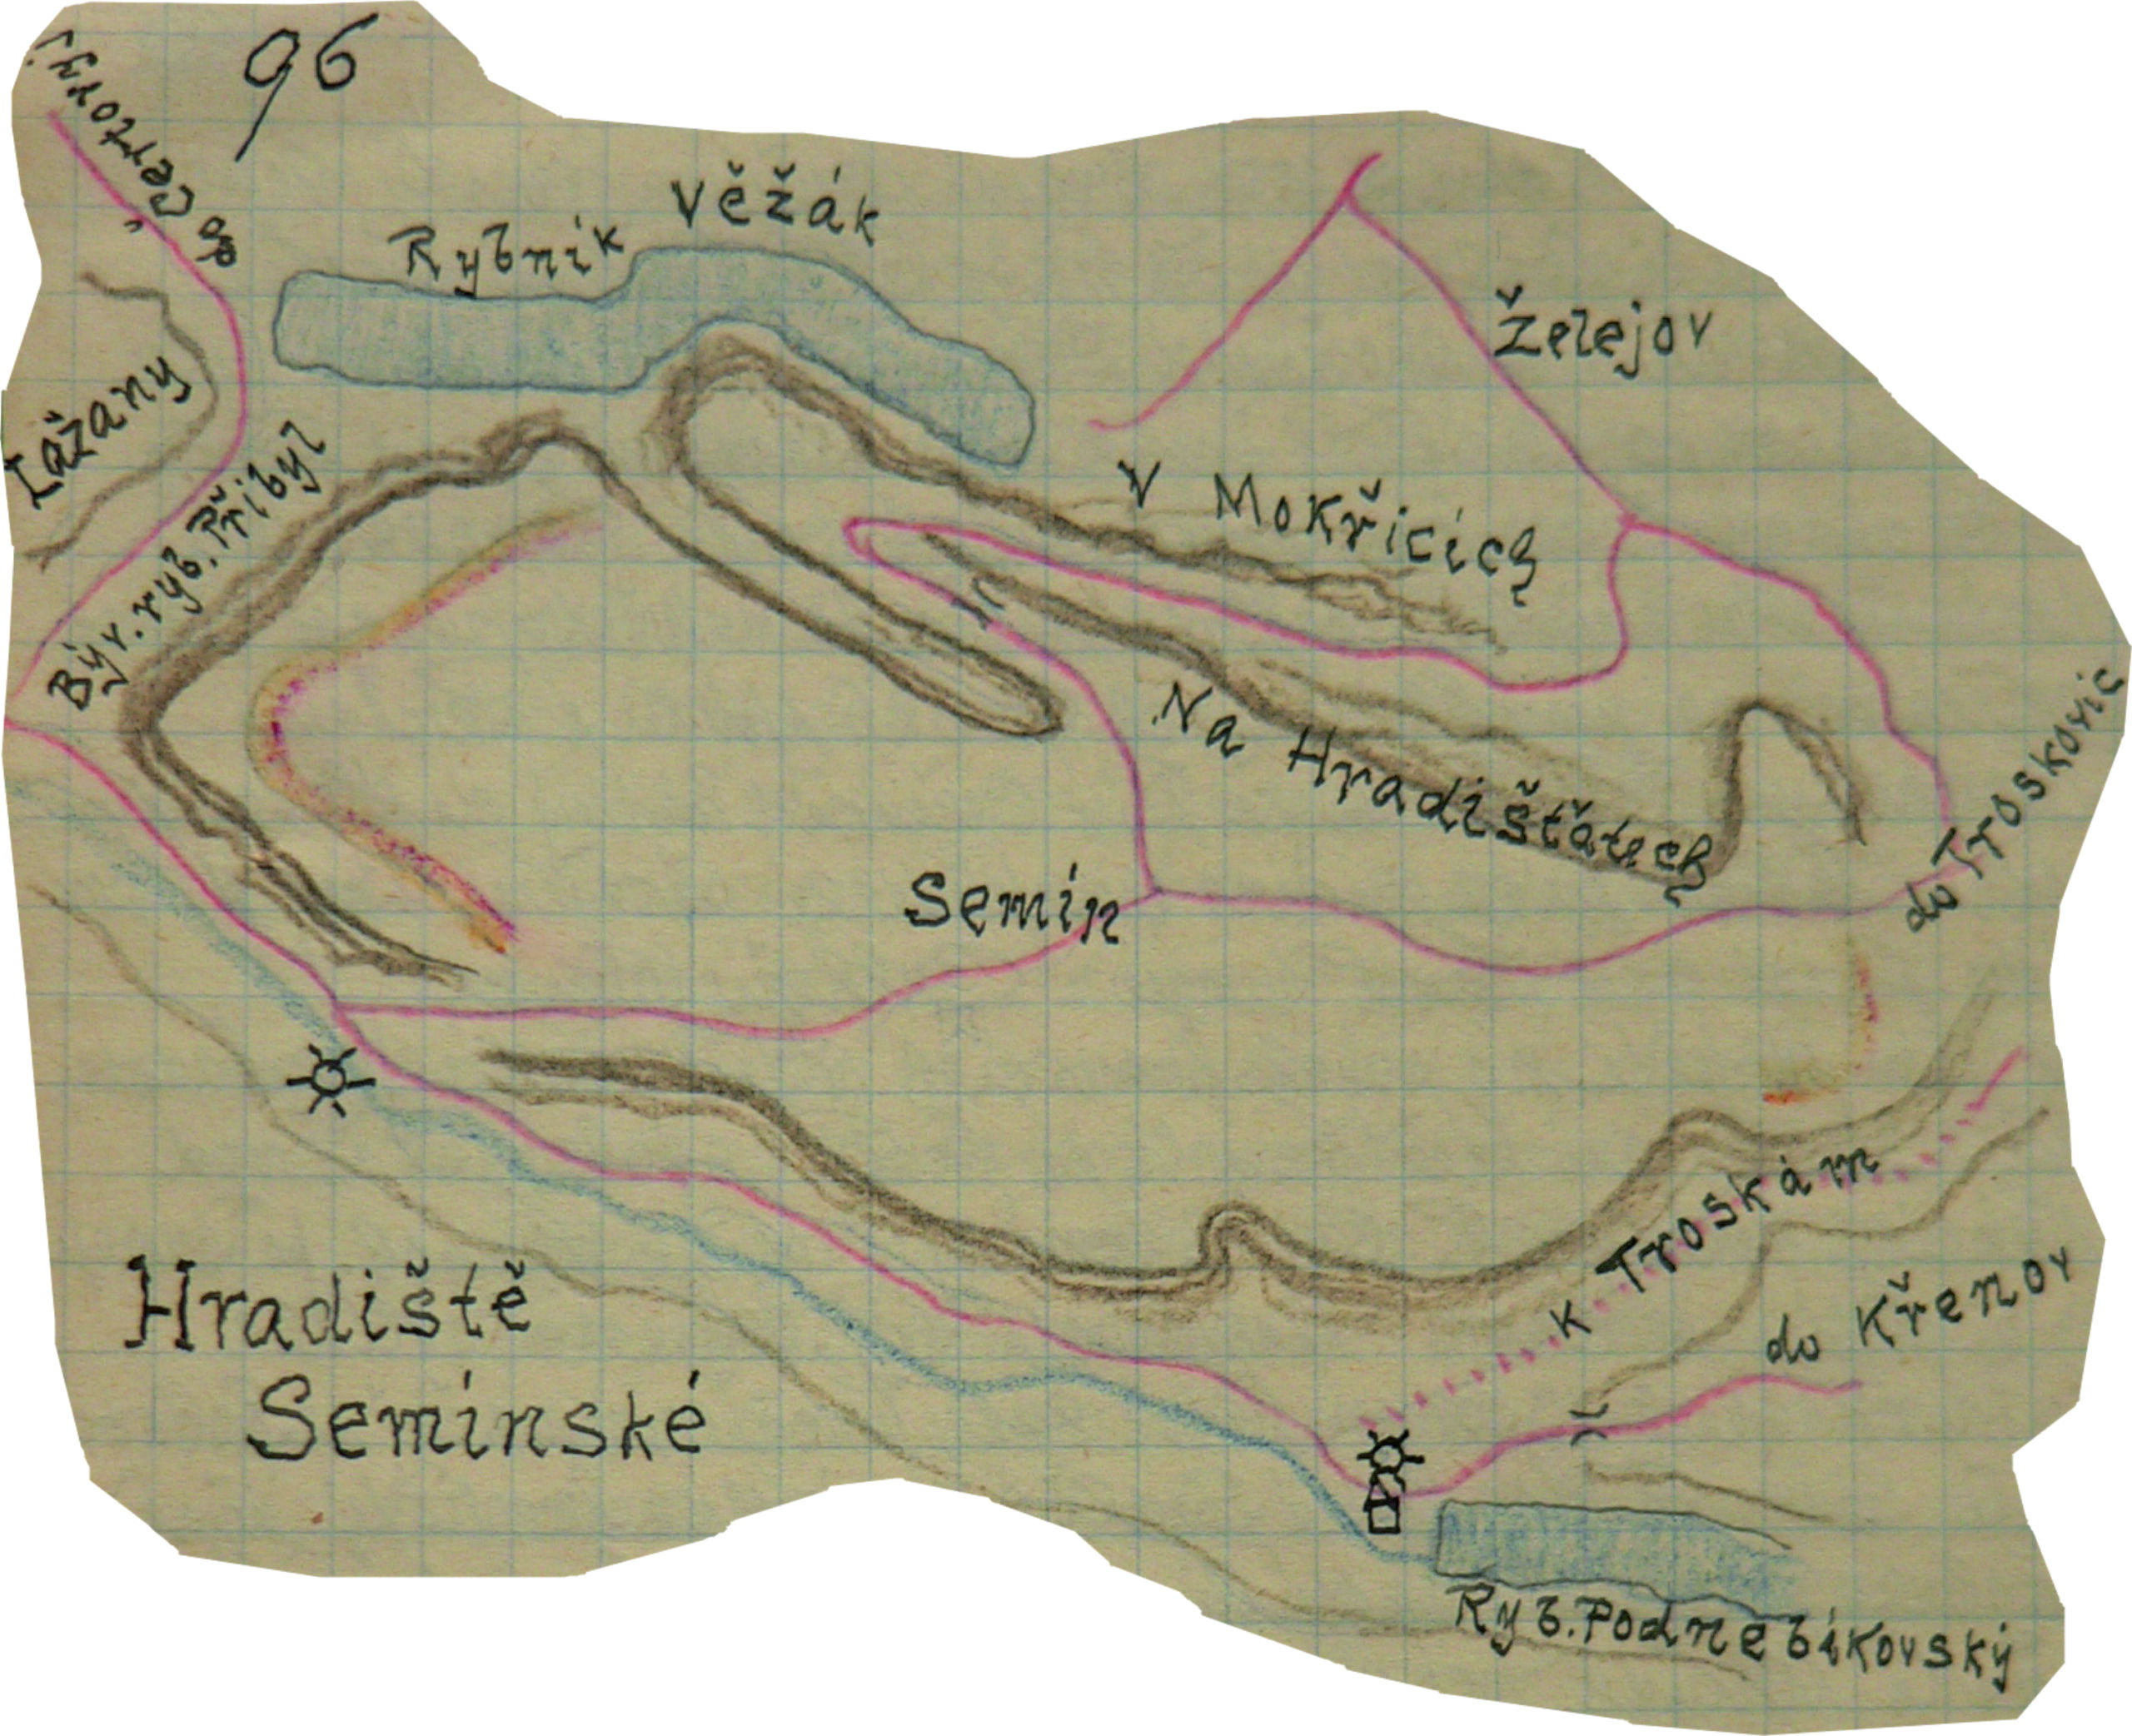 96
do Čertoryj.
Rybník Věžák
Želejov
Lažany
Býv. ryb. Přibyl
V Mokřicích
Na Hradišťátech
do Troskovic
Semín
K Troskám
do Křenov
Hradiště
Semínské
Ryb. Podnebákovský